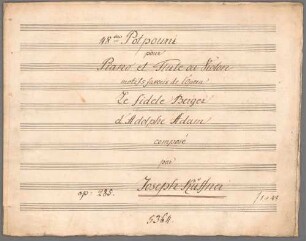 48me Potpourri
pour
Piano et Flute ou Violon
motifs favoris de l'Opera
Le fidele Berger
d'Adolphe Adam
composé
par
Joseph Küffner
op: 285.
5364